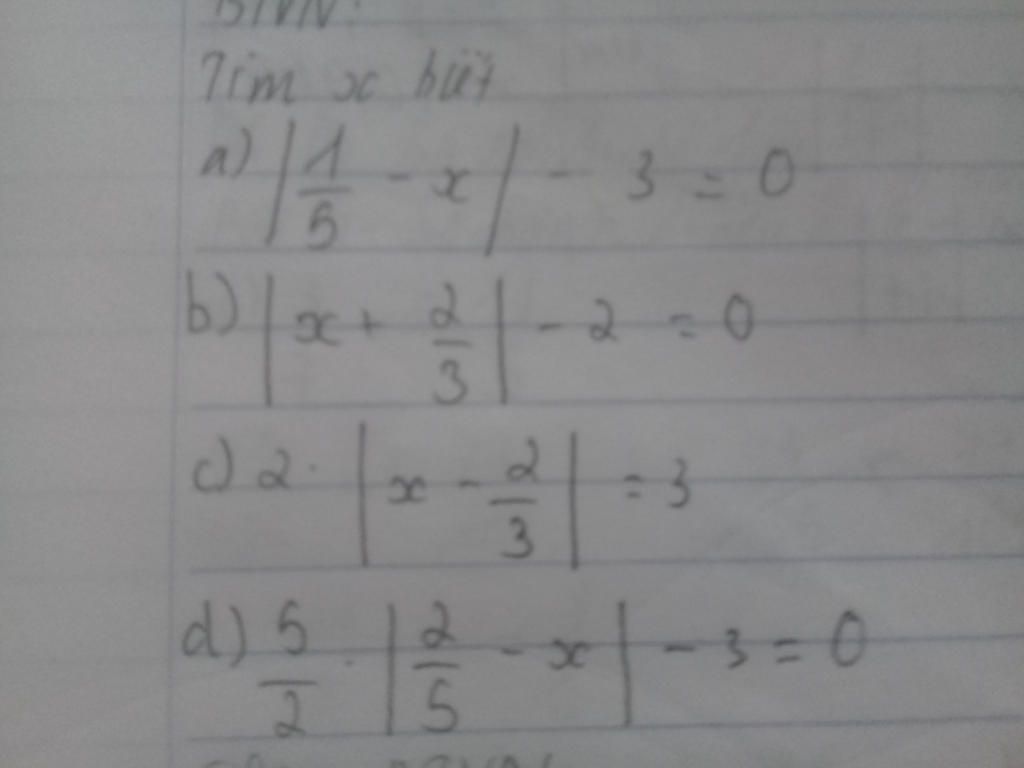 BTVN:
Tìm x biết
a) |1/5 - x| - 3 = 0
b) |x + 2/3| - 2 = 0
c) 2. |x - 2/3| = 3
d) 5/2 . |2/5 - x| - 3 = 0